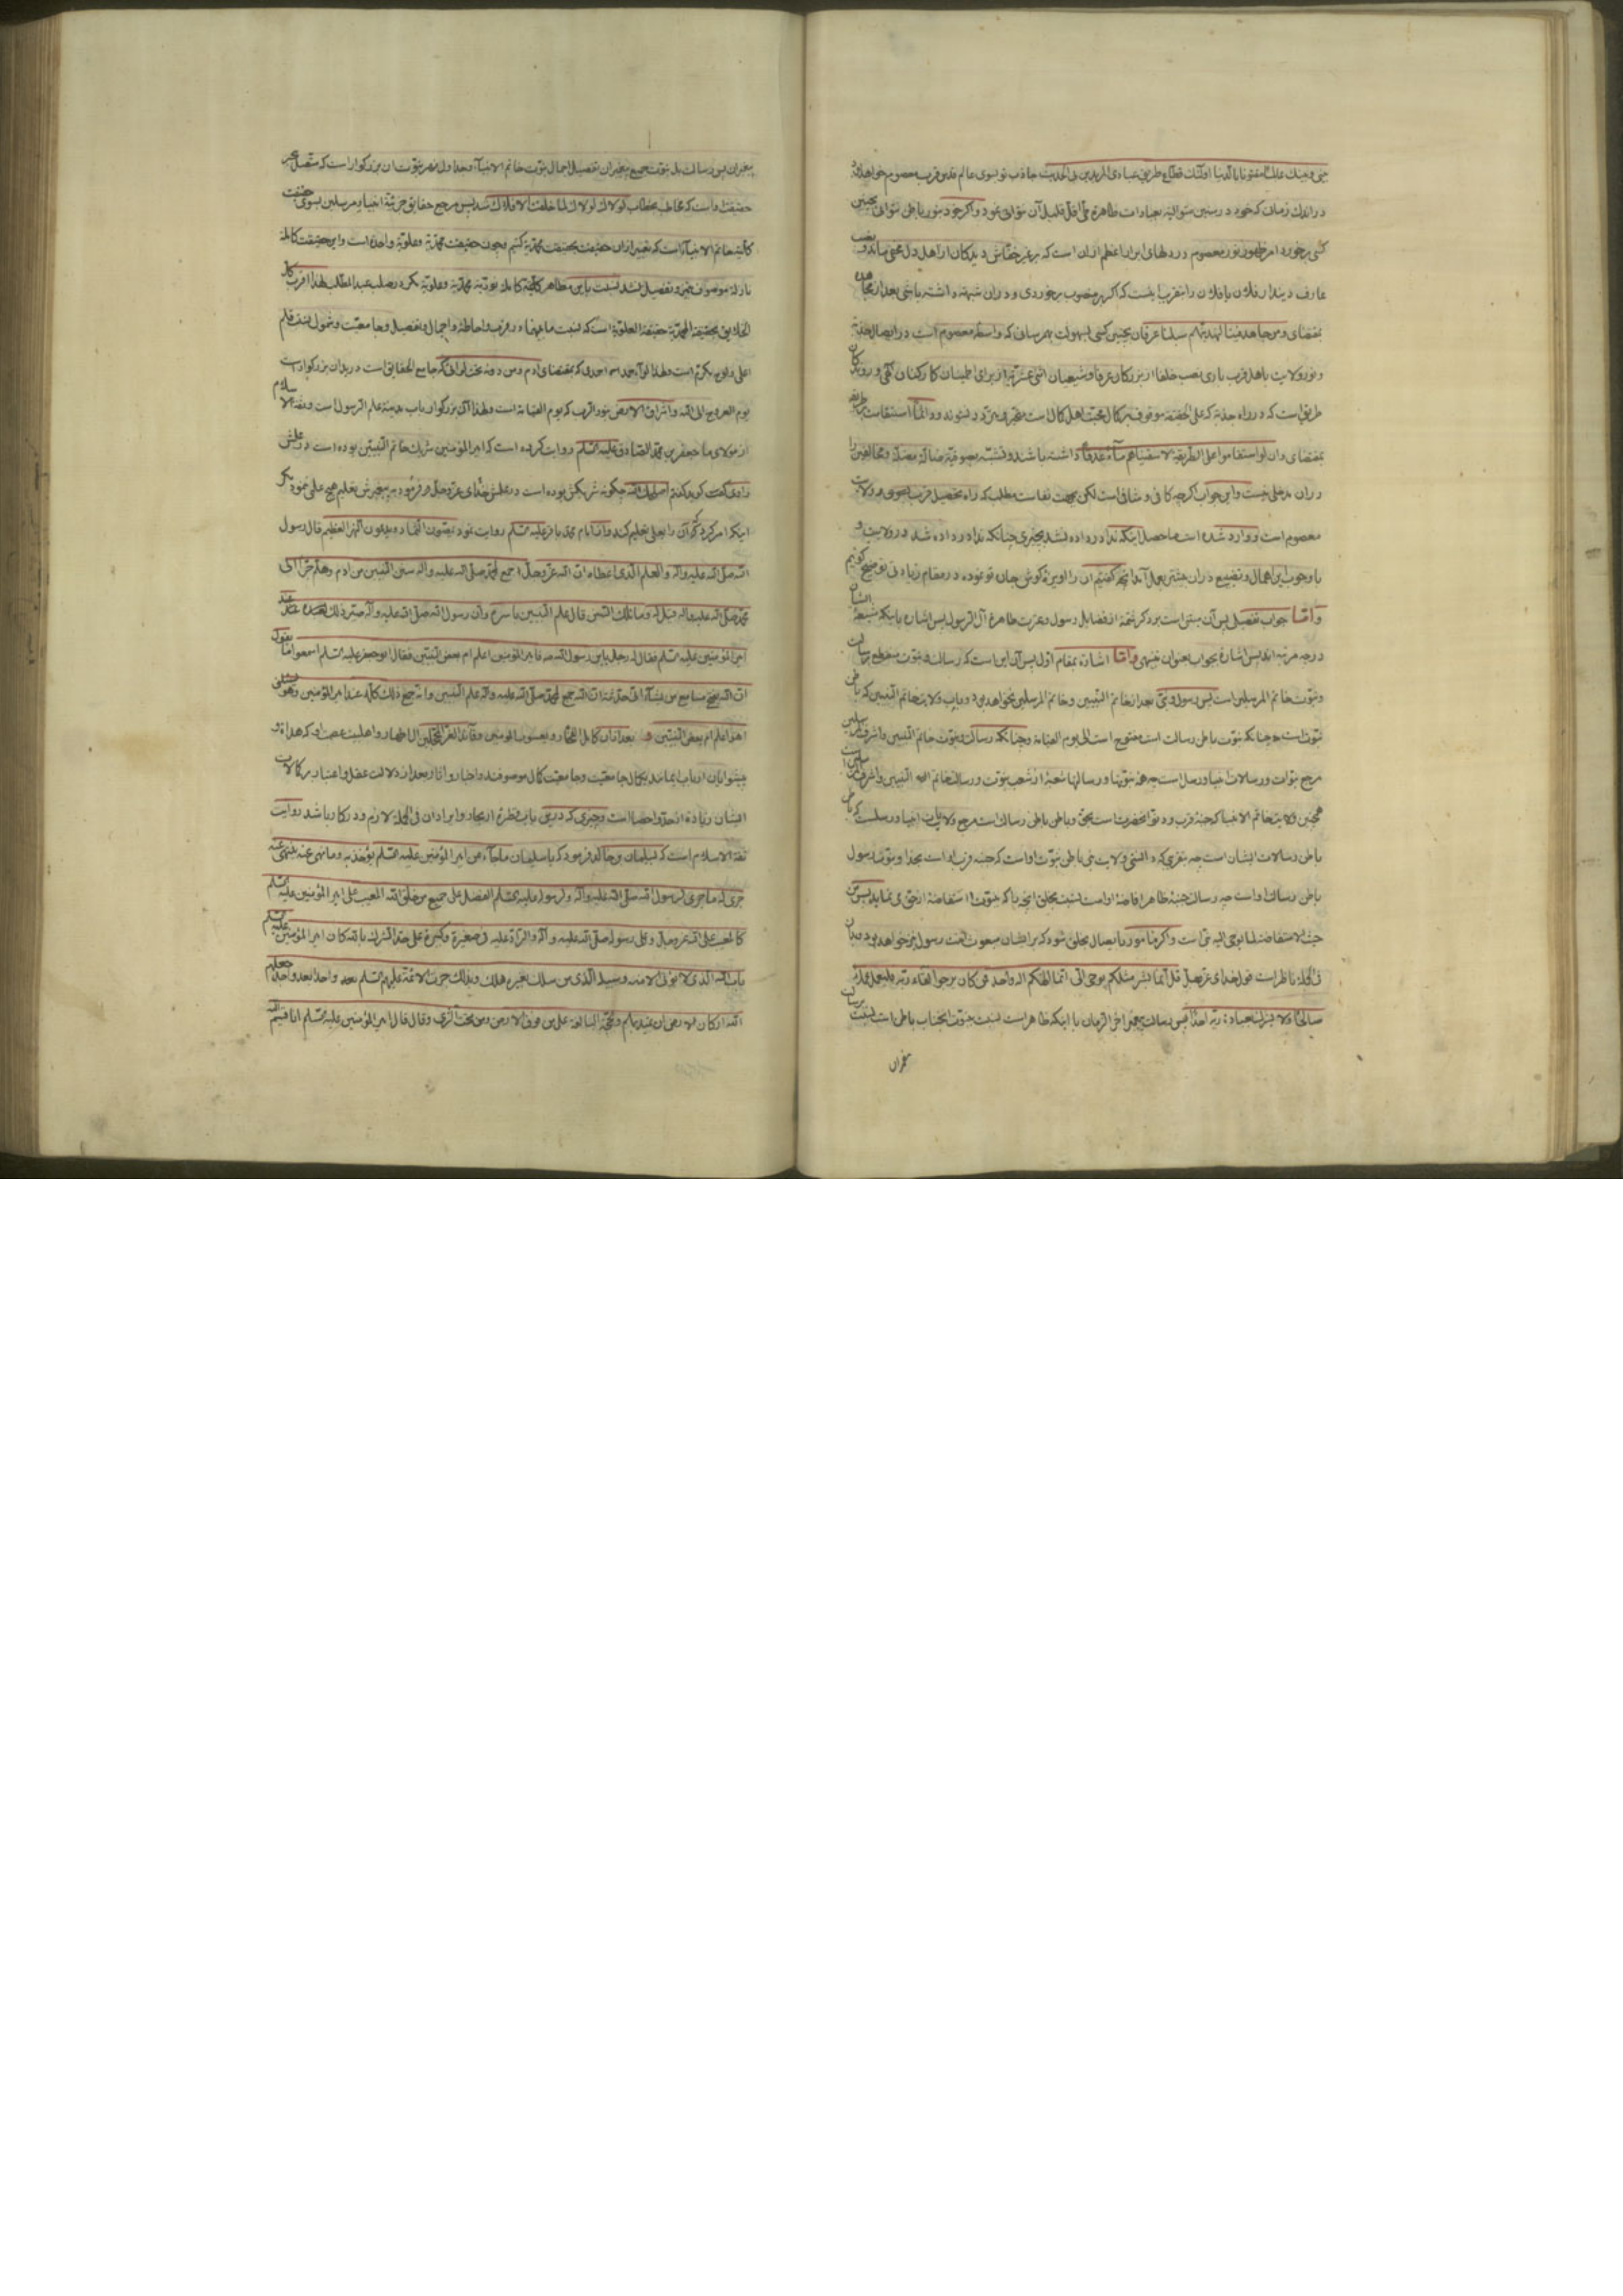 بینی و بینك عالما مفتونا بالدنیا اولئك قطاع طریق عبادی المریدین فی الحدیث جاذب تو بسوی عالم قدس قرب معصوم خواهد
در اندك زمان كه خود در سنین متوالیه بعبادات ظاهره علی اقل قلیل آن نتوانی نمود و اگر خود بنور باطن نتوانی بچنین
كسی برخورد امر ظهور نور معصوم در دلهای ابرار اعظم از ان است كه بر غیر خفاش دیدگان از اهل دل مخفی ماند
عارف دیندار فلان یا فلان را بتقریب اینست كه اگر بر منصوب برخوردی و در ان شبهه داشته باشی بعد از مجاهده
بمقتضای و من جاهد فینا لنهدینهم سبلنا عرفان بچنین كسی بسهولت بهم رسان كه واسطه معصوم است در ایصال جذبه
و نور ولایت باهل قرب باری نصب خلفا از بزرگان عرفا و شیعیان اثنی عشریه از برای اطمینان كاركنان
طریق است كه در راه جذبه كه علی الحقیقه موقوف بر كمال محبت اهل كمال است متحیر و متردد نشوند و دائما استقامت
بمقتضای و ان لو استقاموا علی الطریقة لاسقیناهم ماء غدقا داشته باشند و تشبه بصوفیه ضاله مضله و مخالفین را
در ان مدخلی نیست و این جواب اگرچه كافی و شافی است لكن بجهت نفاست مطلب كه راه تحصیل قرب
معصوم است و وارد شده است ما حصل اینكه ندا در داده نشد بچیزی چنانكه ندا در داده شد در ولایت و
با وجوب این اهمال و تضییع در ان بیشتر بعمل آمد آنچه گفتیم ان را اویزه گوش جان تو نموده در مقام زیادتی توضیح گوئیم
و اما جواب تفصیلی پس آن مبتنی است بر ذكر شمه از فضایل رسول و عترت طاهره آل الرسول پس اشاره باینكه شیعه ایشان
درجه مرتبه اند پس اشاره بجواب بعنوان منتهی و اما اشاره بمقام اول پس آن این است كه رسالت و نبوت منقطع برسالت
و نبوت خاتم المرسلین است پس رسول و نبی بعد از خاتم النبیین و خاتم المرسلین نخواهد بود و باب ولایت خاتم النبیین كه باطن
نبوتست چنانكه نبوت باطن رسالت است مفتوح است الی یوم القیامة و چنانكه رسالت و نبوت خاتم النبیین و اشرف المرسلین
مرجع نبوات و رسالات انبیا و رسل است چه همه نبوتها و رسالتها شعبه از شعب نبوت و رسالت خاتم النبیین و اشرف المرسلین است
همچنین ولایت خاتم الانبیا كه جنبه قرب و دنو آنحضرت است بحق و باطن باطن رسالت است مرجع ولایات انبیا و رسلست كه باطن
باطن رسالات ایشان است چه بنحوی كه دانستی ولایت نبی باطن نبوت اواست كه جنبه قرب او است بخدا و نبوت رسول
باطن رسالت اواست چه رسالت جنبه ظاهر افاضه اوامر است نسبت بخلق آنچه را كه بنبوت استفاضه از حق می نماید پس من
حیث الاستفاضة لما یوحی الیه نبی است و اگر مامور بایصال بخلق شود كه بر ایشان مبعوث است رسول نیز خواهد بود
فی الجمله ناظر است قول خدای عز و جل قل انما انا بشر مثلكم یوحی الی انما الهكم اله واحد فمن كان یرجوا لقاء ربه فلیعمل عملا
صالحا و لا یشرك بعبادة ربه احدا پس رسالت پیغمبر آخر الزمان با اینكه ظاهر است نسبت بنبوت آنجناب باطن است نسبت برسالت
پیغمبران
پیغمبران پس رسالت بل نبوت جمیع پیغمبران تفصیل اجمال نبوت خاتم الانبیا و جداول نهر نبوت ان بزرگوار است كه متصل ببحر
حقیقت اواست كه مخاطب بخطاب لولاك لولاك لما خلقت الافلاك شد پس مرجع حقایق جزئیه انبیا و مرسلین بسوی حقیقت
كلیه خاتم الانبیاء است كه تعبیر از ان حقیقت بحقیقت محمدیه كنیم و چون حقیقت محمدیه و علویه واحده است و این حقیقت كامله
نازله موصوف بتجزیه و تفصیل نشد نسبت باین مظاهر كلیه كامله نوریه محمدیه و علویه مگر در صلب عبد المطلب لهذا اقرب كل
الخلایق بحقیقة المحمدیة حقیقة العلویة است كه نسبت ما بینهما در قرب و احاطه و اجمال و تفصیل و جامعیت و شمول نسبت قلم
اعلی و لوح مكرم است و لهذا لوآء حمد اسم احمدی كه بمقتضای آدم و من دونه تحت لوائی كه جامع الحقایق است در ید ان بزرگوار است
یوم العروج الی الله و اشراق الارض بنور الرب كه یوم القیامة است و لهذا آن بزرگوار باب مدینه علم الرسول است و ثقة الاسلام
از مولای ما جعفر بن محمد الصادق علیه السلم روایت كرده است كه امیر المؤمنین شریك خاتم النبیین بوده است در علمش
راوی گفت گوید گفتم اصلحك الله چگونه شریكش بوده است در علمش خدای عز و جل و فرمود به پیغمبرش تعلیم هیچ علمی نمود مگر
اینكه امر كرد كه آن را بعلی تعلیم كند و از امام محمد باقر علیه السلم روایت نمود یمصون الثماد و یدعون النهر العظیم قال رسول
الله صلی الله علیه و آله و العلم الذی اعطاه الله ان الله عز و جل جمع لمحمد صلی الله علیه و آله سنن النبیین من آدم و هلم جرا الی
محمد صلی الله علیه و اله قیل له و ما تلك السنن قال علم النبیین باسره و ان رسول الله صلی الله علیه و آله صیر ذلك كله عند
امیر المؤمنین علیه السلم فقال له رجل یابن رسول الله فامیر المؤمنین اعلم ام بعض النبیین فقال ابو جعفر علیه السلم اسمعوا ما یقول
ان الله یفتح مسامع من یشآء انی حدثته ان الله جمع لمحمد صلی الله علیه و آله علم النبیین و انه جمع ذلك كله عند امیر المؤمنین و هو یسئلنی
اهو اعلم ام بعض النبیین و بعد از ان كامل المختار و یعسوب المؤمنین و قائد الغر المحجلین آل اطهار و اهلبیت عصمت او كه هداة و
پیشوایان ارباب ایمانند بكمال جامعیت و جامعیت كمال موصوفند و اخبار و آثار بعد از دلالت عقل و اعتبار بر كمالات
ایشان زیاده از حد و احصا است و چیزی كه درین باب قطره از بحار و ایراد ان فی الجمله لازم و در كار باشد روایت
ثقة الاسلام است كه لسلیمان بن خالد فرمود كه یا سلیمان ما جآء من امیر المؤمنین علیه السلم یؤخذ به و ما نهی عنه ینتهی عنه
جری له ما جری لرسول الله صلی الله علیه و آله و لرسوله علیه السلم الفضل علی جمیع من خلق الله المعیب علی امیر المؤمنین علیه السلم
كالمعیب علی الله عز و جل و علی رسوله صلی الله علیه و آله و الراد علیه فی صغیرة و كبیرة علی حد الشرك بالله كان امیر المؤمنین علیه السلم
باب الله الذی لا یؤتی الا منه و سبیله الذی من سلك بغیره هلك و بذلك جرت الائمة علیهم السلم واحدا بعد واحد جعلهم
الله اركان الارض ان تمید بهم و الحجة البالغة علی من فوق الارض و من تحت الثری و قال قال امیر المؤمنین علیه السلم انا قسیم الله